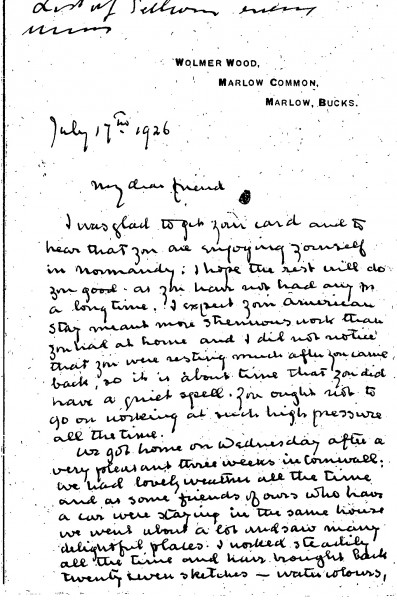 List of
WOLMER WOOD,
MARLOW COMMON,
MARLOW, BUCKS.
July 17th 1926
My dear friend
I was glad to get your card and to
hear that you are enjoying yourself
in Normandy: I hope the rest will do
you good - as you have not had any for
a long time. I expect your American
stay meant more strenuous work than
you had at home and I did not notice
that you were resting much after you came
back, so it is about time that you did
have a quiet spell. You ought not to
go on working at such high pressure
all the time.
We got home on Wednesday after a
very pleasant three weeks in Cornwall:
we had lovely weather all the time
and as some friends of ours who have
a car were staying in the same house
we went about a lot and saw many
delightful places. I worked steadily
all the time and have brought back
twenty seven sketches - water colours,